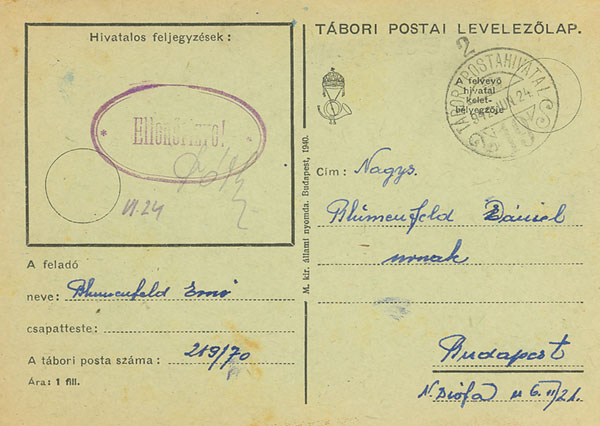 Hivatalos feljegyzések :
Ellenőrizve!
VI.24
A feladó
neve: Blumenfeld Ernő
csapatteste:
A tábori posta száma : 219/70
Ára: 1 fill.
M. kir. állami nyomda. Budapest, 1940.
TÁBORI POSTAI LEVELEZŐLAP.
2
A felvevő
hivatal
kelet-
bélyegzője
TÁBORI POSTAHIVATAL
JUN. 24
Cím : Nagys.
Blumenfeld Dániel
urnak
Budapest
N. Diófa u 6. II/21.